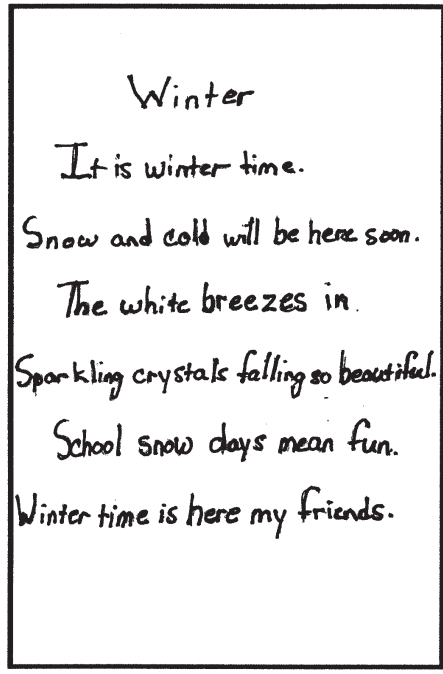 Winter
It is winter time.
Snow and cold will be here soon.
The white breezes in.
Sparkling crystals falling so beautiful.
School snow days mean fun.
Winter time is here my friends.